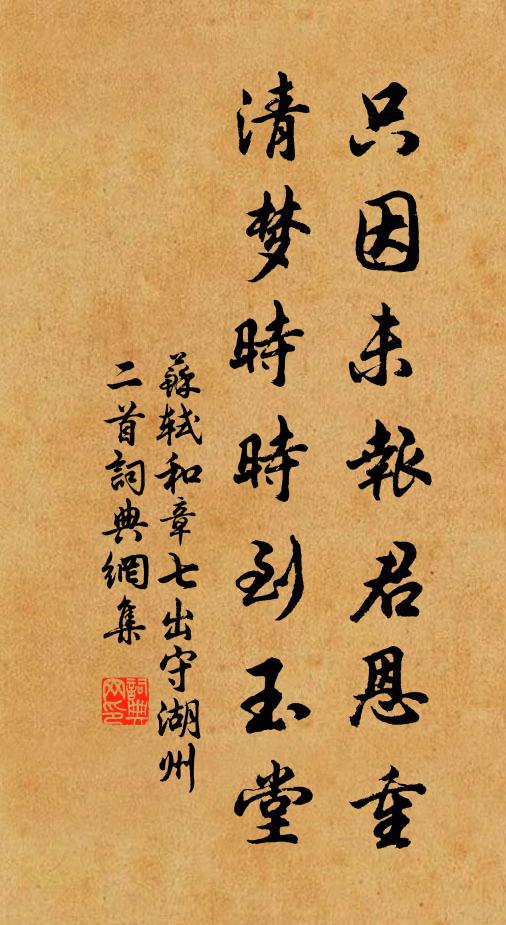 只因未報君恩重
清梦時時到玉堂
蘇軾和章七出守湖州
二首詞典網集
詞典
网印